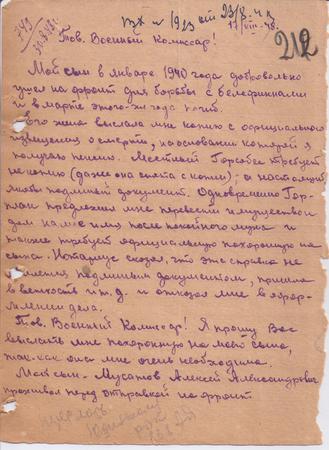 вх № 1923 от 23/8-48
17/VIII-48.
212
Тов. Военный Комиссар!
Мой сын в январе 1940 года добровольно
ушел на фронт для борьбы с белофиннами
и в марте этого-же года погиб.
Его жена выслала мне копию с официального
извещения о смерти, на основании которой я
получаю пенсию. Местный Горсобес требует
не копию (даже она снята с копии) - а настоящий,
подлинный документ. Одновременно Гор-
план предложил мне перевести имущество и
дом на мое имя после покойного мужа и
также требует официальную похоронную на
сына. Нотариус сказал, что эта справка не
является подлинным документом, пришла
в ветхость и т.д. и отказал мне в офор-
млении дела.
Тов. Военный Комиссар! Я прошу Вас
выслать мне похоронную на моего сына,
так-как она мне очень необходима.
Мой сын - Мусатов Алексей Александрович
проживал перед отправкой на фронт